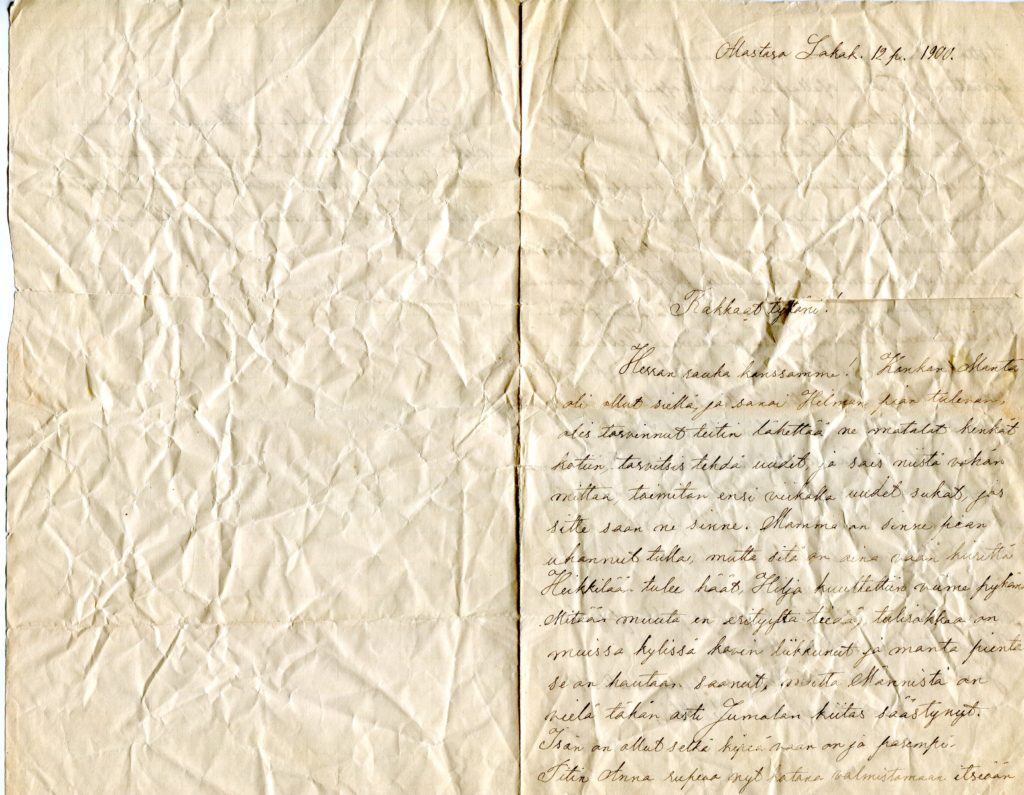 Mastasa Lokak. 12 p. 1900.
Rakkaat tyttäni!
Herran rauha kanssamme! Kankan Manta
oli ollut siellä, ja sanoi Helman pian tulevan,
olis tarvinnut teitin lähettää ne matalat kenkät
kotiin, tarvitsis tehdä uudet, ja sais niistä vähän
mittaa, toimitan ensi viikolla uudet sukat, jos
sitte saan ne sinne. Mamma on sinne pian
uhannut tulla, mutta sitä on aina vaan kiirettä
Heikkilään tulee häät, Hilja kuuluttettiin viime pyhänä
Mitään muuta en erityistä tiedä, tulirokkoa on
muissa kylissä kovin liikkunut ja monta pientä
se on hautaan saanut, mutta Männistä on
vielä tähän asti Jumalan kiitos säästynyt.
Isän on ollut selkä kipeä vaan on jo parempi.
Titin Anna rupeaa nyt kotona valmistamaan itseään